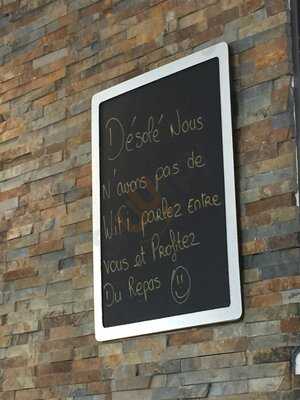 Désolé Nous
N'avons pas de
WiFi parlez Entre
vous et Profitez
Du Repas